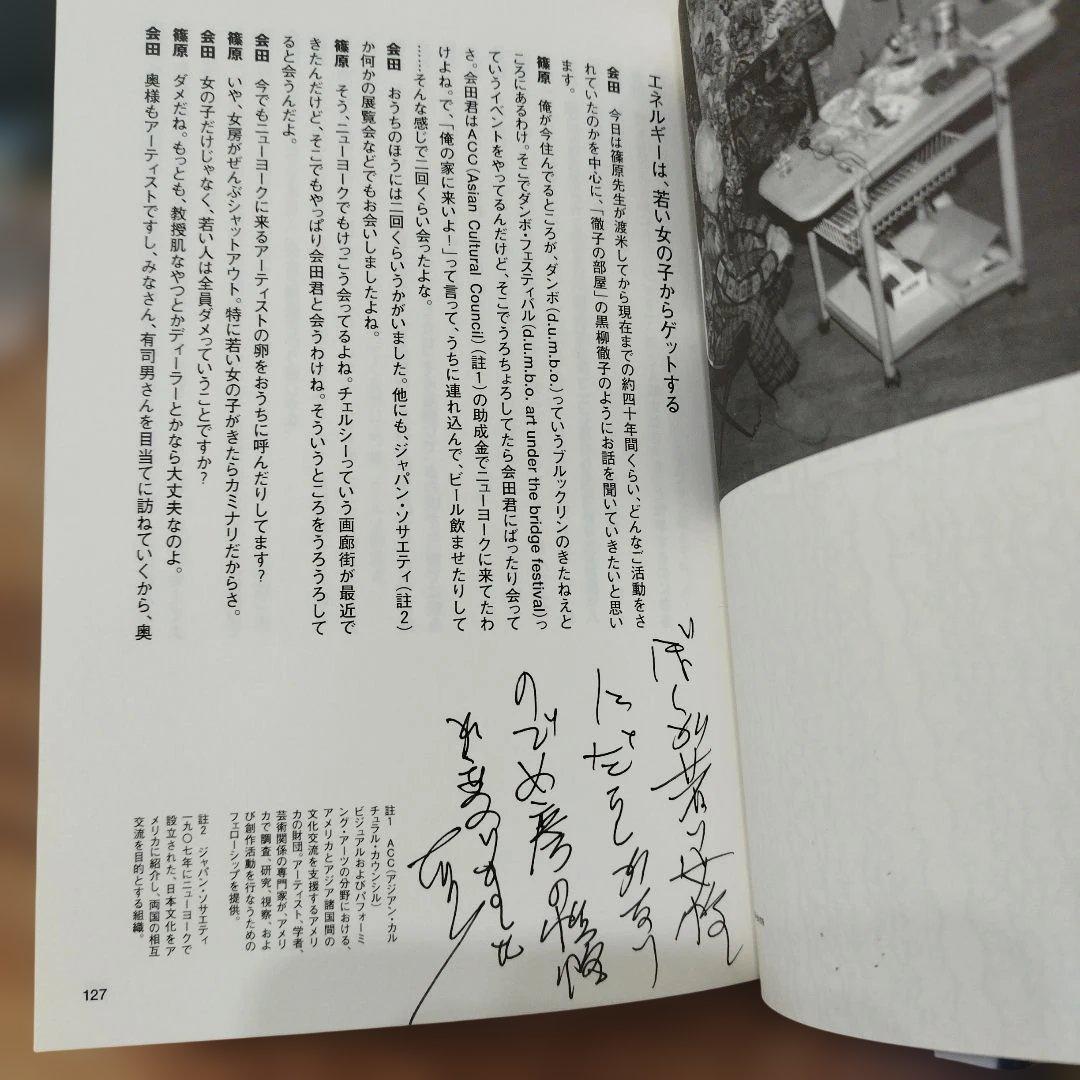 エネルギーは、若い女の子からゲットする
会田　今日は篠原先生が渡米してから現在までの約四十年間くらい、どんなご活動をさ
れていたのかを中心に、「徹子の部屋」の黒柳徹子のようにお話を聞いていきたいと思い
ます。
篠原　俺が今住んでるところが、ダンボ(d.u.m.b.o.)っていうブルックリンのきたねえと
ころにあるわけ。そこでダンボ・フェスティバル(d.u.m.b.o. art under the bridge festival)っ
ていうイベントをやってるんだけど、そこでうろちょろしてたら会田君にばったり会って
さ。会田君はACC(Asian Cultural Council)(註1)の助成金でニューヨークに来てたわ
けよね。で、「俺の家に来いよ!」って言って、うちに連れ込んで、ビール飲ませたりして
……そんな感じで二回くらい会ったよな。
会田　おうちのほうには二回くらいうかがいました。他にも、ジャパン・ソサエティ(註2)
か何かの展覧会などでもお会いしましたよね。
篠原　そう、ニューヨークでもけっこう会ってるよね。チェルシーっていう画廊街が最近で
きたんだけど、そこでもやっぱり会田君と会うわけね。そういうところをうろうろして
ると会うんだよ。
会田　今でもニューヨークに来るアーティストの卵をおうちに呼んだりしてます?
篠原　いや、女房がぜんぶシャットアウト。特に若い女の子がきたらカミナリだからさ。
会田　女の子だけじゃなく、若い人は全員ダメっていうことですか?
篠原　ダメだね。もっとも、教授肌なやつとかディーラーとかなら大丈夫なのよ。
会田　奥様もアーティストですし、みなさん、有司男さんを目当てに訪ねていくから、奥
註1　ACC(アジアン・カル
チュラル・カウンシル)
ビジュアルおよびパフォーミ
ング・アーツの分野における、
アメリカとアジア諸国間の
文化交流を支援するアメリ
カの財団。アーティスト、学者、
芸術関係の専門家が、アメリ
カで調査、研究、視察、およ
び創作活動を行なうための
フェローシップを提供。
註2　ジャパン・ソサエティ
一九〇七年にニューヨークで
設立された、日本文化をア
メリカに紹介し、両国の相互
交流を目的とする組織。
127